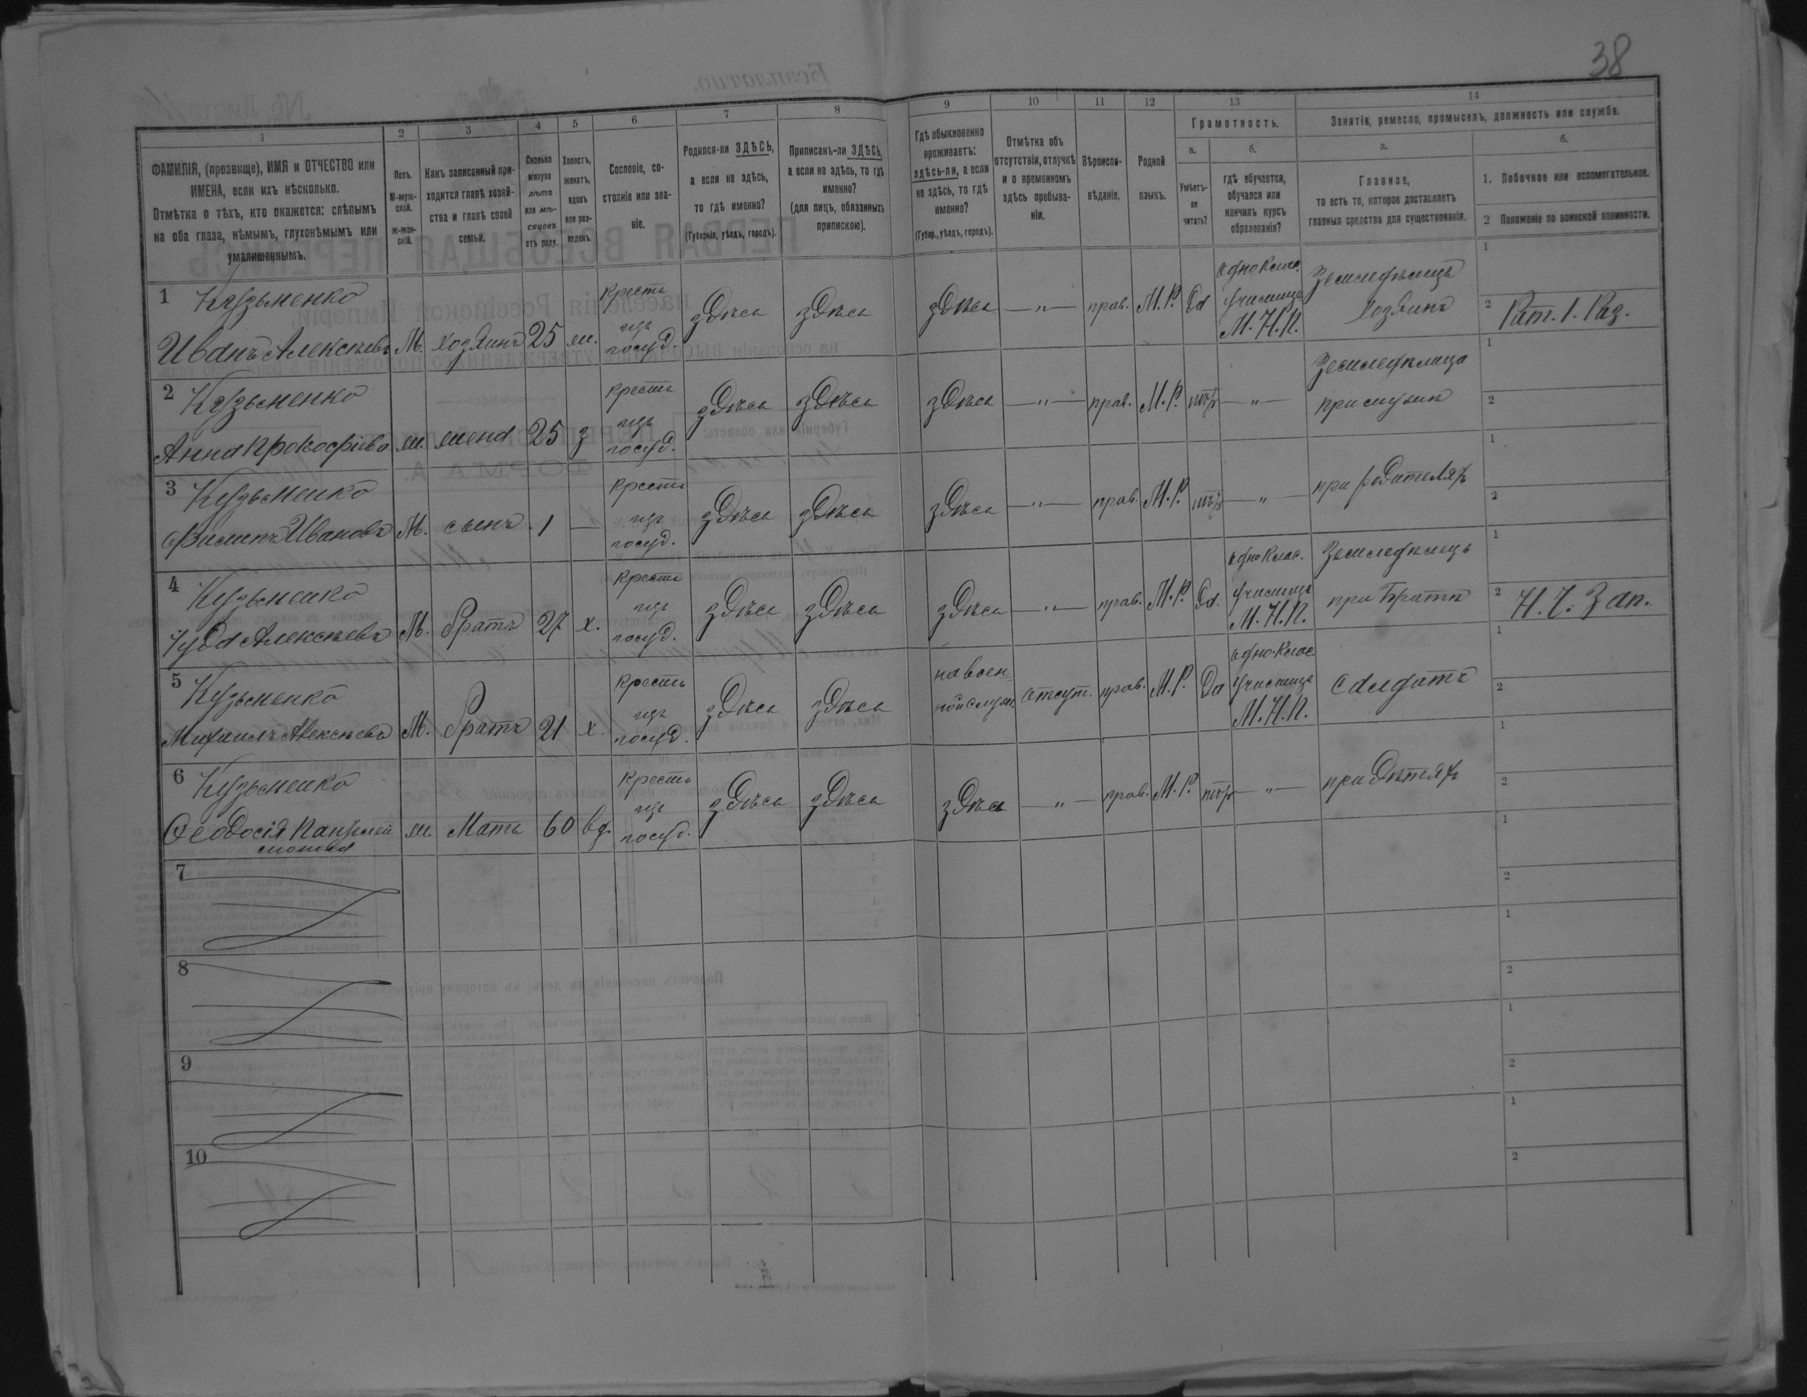 38
1 2 3 4 5 6 7 8 9 10 11 12 13 14
ФАМИЛІЯ, (прозвище), ИМЯ и ОТЧЕСТВО или
ИМЕНА, если ихъ нѣсколько.
Отмѣтка о тѣхъ, кто окажется: слѣпымъ
на оба глаза, нѣмымъ, глухонѣмымъ или
умалишеннымъ.
Полъ.
М-муж-
ской.
Ж-жен-
скій.
Какъ записанный при-
ходится главѣ хозяй-
ства и главѣ своей
семьи.
Сколько
минуло
лѣтъ
или мѣ-
сяцевъ
отъ роду.
Холостъ,
женатъ,
вдовъ
или раз-
веденъ.
Сословіе, со-
стояніе или зва-
ніе.
Родился-ли ЗДѢСЬ,
а если не здѣсь,
то гдѣ именно?
(Губернія, уѣздъ, городъ).
Приписанъ-ли ЗДѢСЬ,
а если не здѣсь, то гдѣ
именно?
(для лицъ, обязанныхъ
припискою).
Гдѣ обыкновенно
проживаетъ:
здѣсь-ли, а если
не здѣсь, то гдѣ
именно?
(Губер., уѣздъ, городъ).
Отмѣтка объ
отсутствіи, отлучкѣ
и о временномъ
здѣсь пребыва-
ніи.
Вѣроиспо-
вѣданіе.
Родной
языкъ.
Грамотность.
а.
Умѣетъ-
ли
читать?
б.
гдѣ обучается,
обучался или
кончилъ курсъ
образованія?
Занятіе, ремесло, промыселъ, должность или служба.
а.
Главное,
то есть то, которое доставляетъ
главныя средства для существованія.
б.
1. Побочное или вспомогательное.
2 Положеніе по воинской повинности.
1 Кузьменко
Иванъ Алексѣевъ М. хозяинъ 25 ж. Крестьизъ госуд. здѣсь здѣсь здѣсь — " — прав. М.Р. Да однокласучилищеМ.Н.П. ЗемледѣлецъХозяинъ 1 2 Рат. 1. Раз.
2 Кузьменко
Анна Прокофіева ж. жена 25 з Крестьизъ госуд. здѣсь здѣсь здѣсь — " — прав. М.Р. нѣтъ — " — Земледѣлица 1 2
3 Кузьменко
Филиппъ Ивановъ М. сынъ 1 — Крестьизъ госуд. здѣсь здѣсь здѣсь — " — прав. М.Р. нѣтъ — " — при родителяхъ 1 2
4 Кузьменко
Алексѣевъ М. братъ 27 х. Крестьизъ госуд. здѣсь здѣсь здѣсь — " — прав. М.Р. Да. однокласучилищеМ.Н.П. Земледѣлецъпри братѣ 1 2 Н. Ч. Зап.
5 Кузьменко
Михаилъ Алексѣевъ М. братъ 21 х. Крестьизъ госуд. здѣсь здѣсь на воен-ной служ. отсут. прав. М.Р. Да однокласучилищеМ.Н.П. Солдатъ 1 2
6 Кузьменко
Ѳеодосія Пантелей-моновa ж. Мать 60 вд. Крестьизъ госуд. здѣсь здѣсь здѣсь — " — прав. М.Р. нѣтъ — " — при дѣтяхъ 1 2
7 1 2
8 1 2
9 1 2
10 1 2